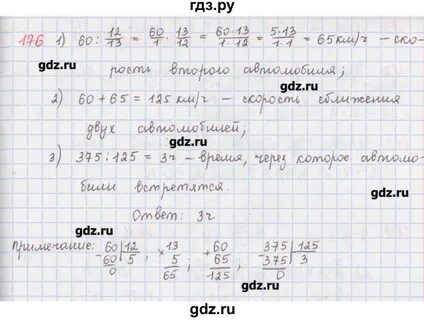 гдз.ру
176 1) 60 : 12/13 = 60/1 · 13/12 = (60·13)/(1·12) = (5·13)/(1·1) = 65 км/ч – ско-
gdz.ru gdz.ru
рость второго автомобиля;
2) 60 + 65 = 125 км/ч – скорость сближения
gdz.ru
двух автомобилей;
gdz.ru
3) 375 : 125 = 3 ч – время, через которое автомо-
били встретятся.
gdz.ru gdz.ru
Ответ: 3 ч
Примечание: -60|12 ; ×13 ; +60 ; -375|125
60 5 5 65 375 3
0 65 125 0
gdz.ru gdz.ru